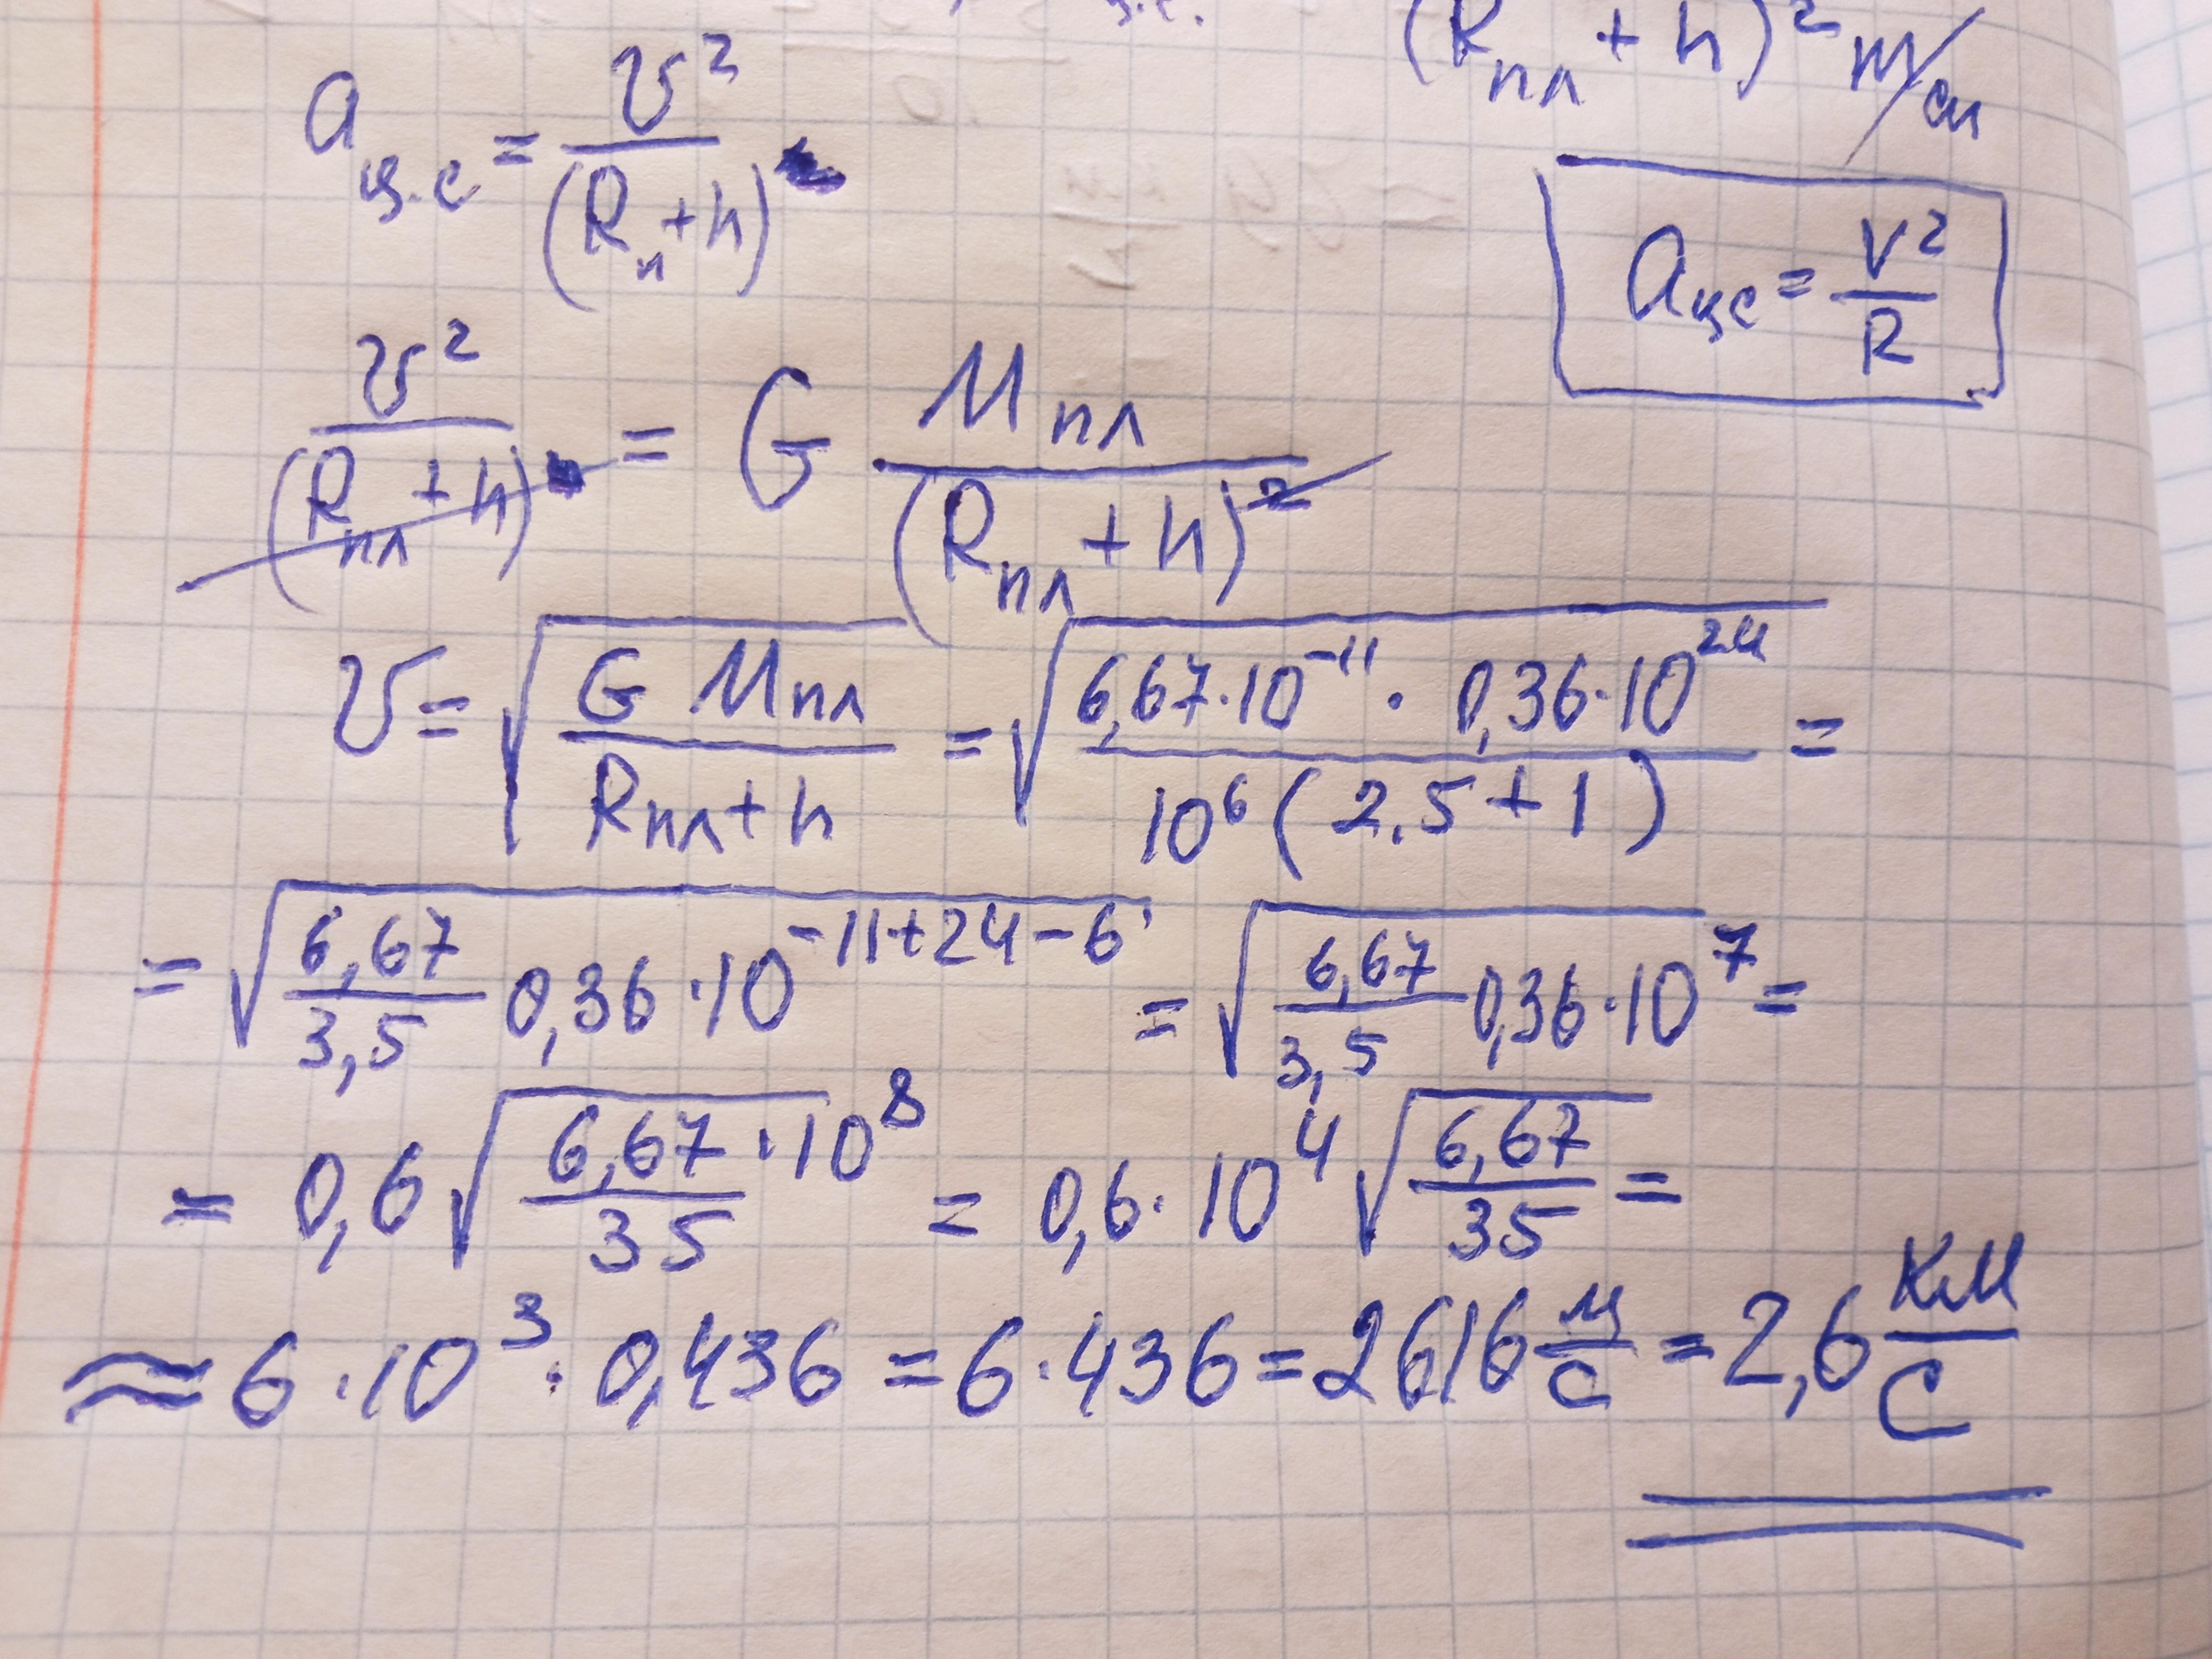 (Rпл + h)² m/сп
aц.с = v²/(Rп + h)
aцс = V²/R
v²/(Rпл + h) = G Mпл/(Rпл + h)²
v = √(G Mпл/(Rпл + h)) = √(6,67·10⁻¹¹ · 0,36·10²⁴/(10⁶(2,5 + 1))) =
= √(6,67/3,5 0,36·10⁻¹¹⁺²⁴⁻⁶) = √(6,67/3,5 0,36·10⁷) =
= 0,6 √(6,67/35 ·10⁸) = 0,6·10⁴ √(6,67/35) =
≈ 6·10³·0,436 = 6·436 = 2616 м/с = 2,6 км/с